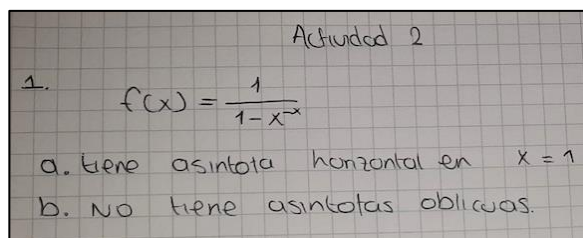 Actividad 2
1.
f(x) = 1/(1 - x^-x)
a. tiene asintota horizontal en x = 1
b. NO tiene asintotas oblicuas.